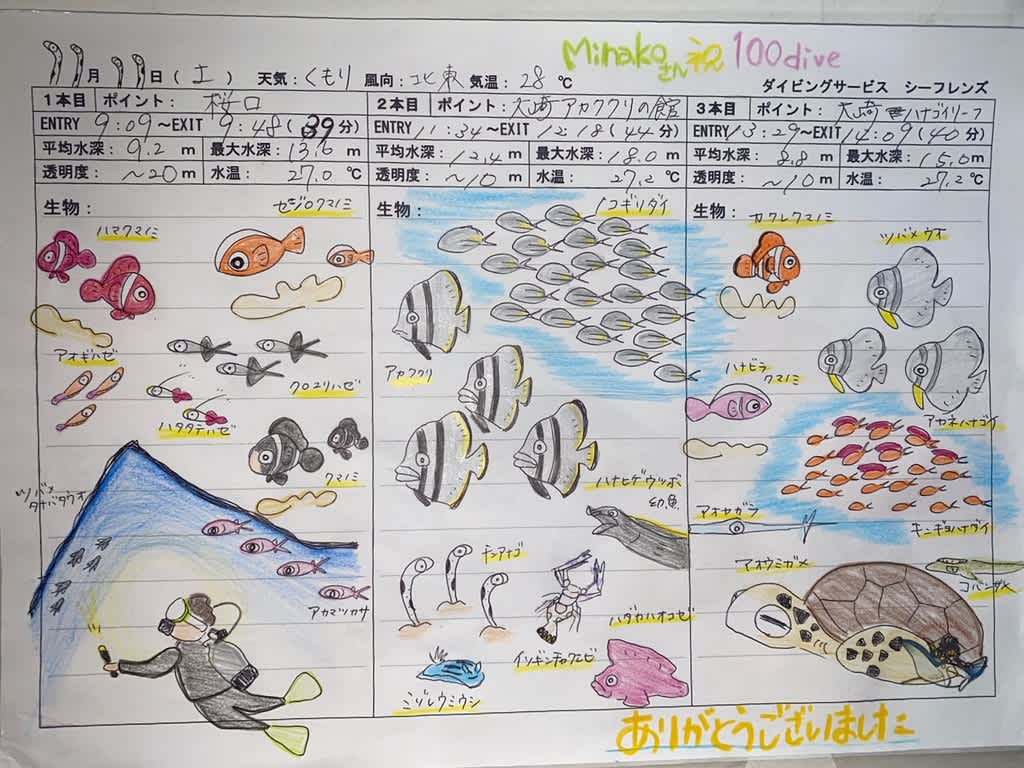 Minakoさん 祝 100dive
11月11日(土) 天気:くもり 風向:北東 気温:28℃ ダイビングサービス シーフレンズ
1本目 ポイント:桜口
ENTRY 9:09〜EXIT 9:48(39分)
平均水深:9.2m 最大水深:13.6m
透明度:〜20m 水温:27.0℃
生物:
セジロクマノミ
ハマクマノミ
アオギハゼ
クロユリハゼ
ハタタテハゼ
クマノミ
ツバメ
タナバタウオ
アカマツカサ
2本目 ポイント:大崎アカククリの館
ENTRY 11:34〜EXIT 12:18(44分)
平均水深:12.4m 最大水深:18.0m
透明度:〜10m 水温:27.2℃
生物:
ノコギリダイ
アカククリ
ハナヒゲウツボ
幼魚
チンアナゴ
ハダカハオコゼ
イソギンチャクエビ
ミゾレウミウシ
3本目 ポイント:大崎ハナゴイリーフ
ENTRY 13:29〜EXIT 14:09(40分)
平均水深:8.8m 最大水深:15.0m
透明度:〜10m 水温:27.2℃
生物:
カクレクマノミ
ツバメウオ
ハナビラ
クマノミ
アカネハナゴイ
アオヤガラ
キンギョハナダイ
アオウミガメ
コバンザメ
ありがとうございました